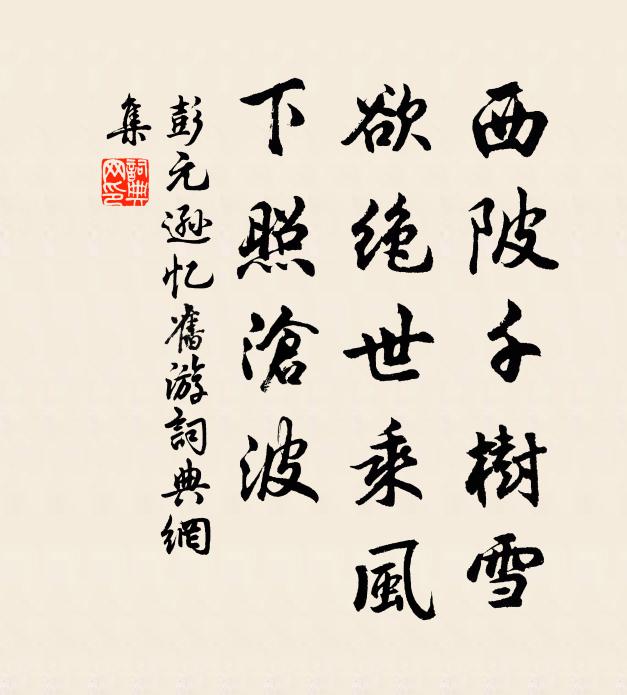 西陂千樹雪
欲絶世乘風
下照滄波
彭元遜忆舊游詞典網
集
詞典網印